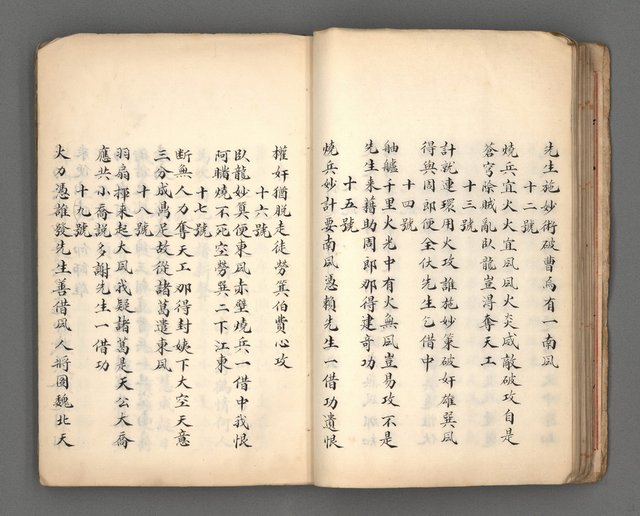 先生施妙術破曹為有一南風
十二號
燒兵宜火火宜風風火炎威敵破攻自是
蒼穹除賊亂臥龍豈淂奪天工
十三號
計就連環用火攻誰施妙策破奸雄巽風
得與周郎便全伏先生乞借中
十四號
舳艫千里火光中有火無風豈易攻不是
先生来藉助周郎那得建奇功
十五號
燒兵妙計要南風憑賴先生一借功遺恨
權奸猶脫走徒勞箕伯費心攻
十六號
臥龍妙算便東風赤壁燒兵一借中我恨
阿瞞燒不死空勞巽二下江東
十七號
斷無人力奪天工那得封姨下太空天意
三分成鼎足故從諸葛遣東風
十八號
羽扇揮来起大風我疑諸葛是天公大喬
應共小喬説多謝先生一借功
十九號
火力憑誰發先生善借風人將圖魏北天